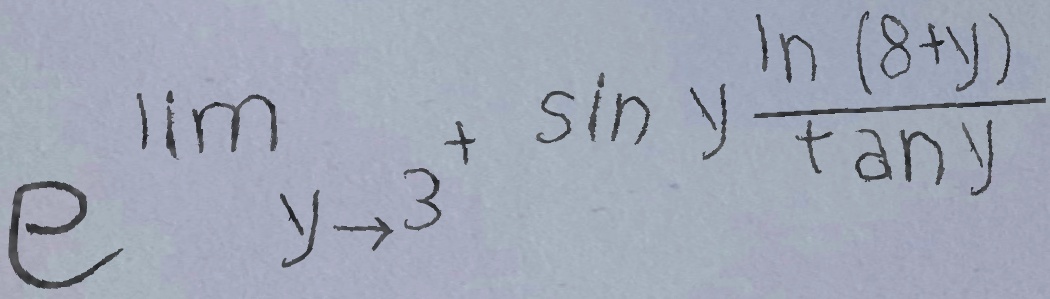 e^{\lim_{y \to 3^+} \sin y \frac{\ln (8+y)}{\tan y}}